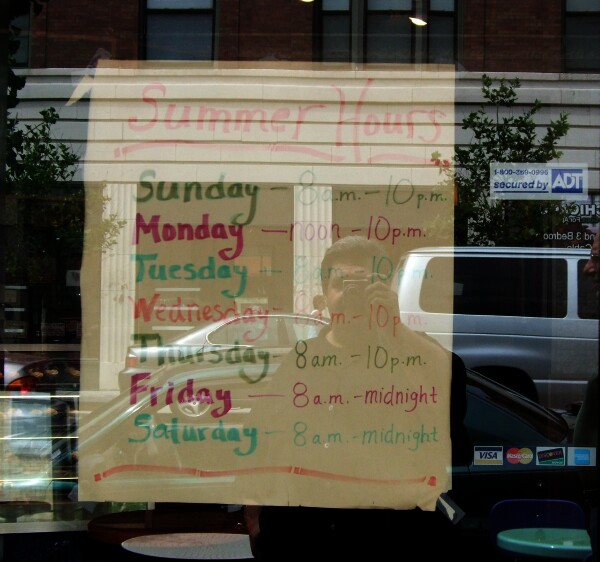 Summer Hours
Sunday - 8 a.m. - 10 p.m.
Monday - noon - 10 p.m.
Tuesday - 8 am. - 10 p.m.
Wednesday - 8 a.m. - 10 p.m.
Thursday - 8 am. - 10 p.m.
Friday - 8 a.m. - midnight
Saturday - 8 a.m. - midnight
secured by ADT
VISA MasterCard